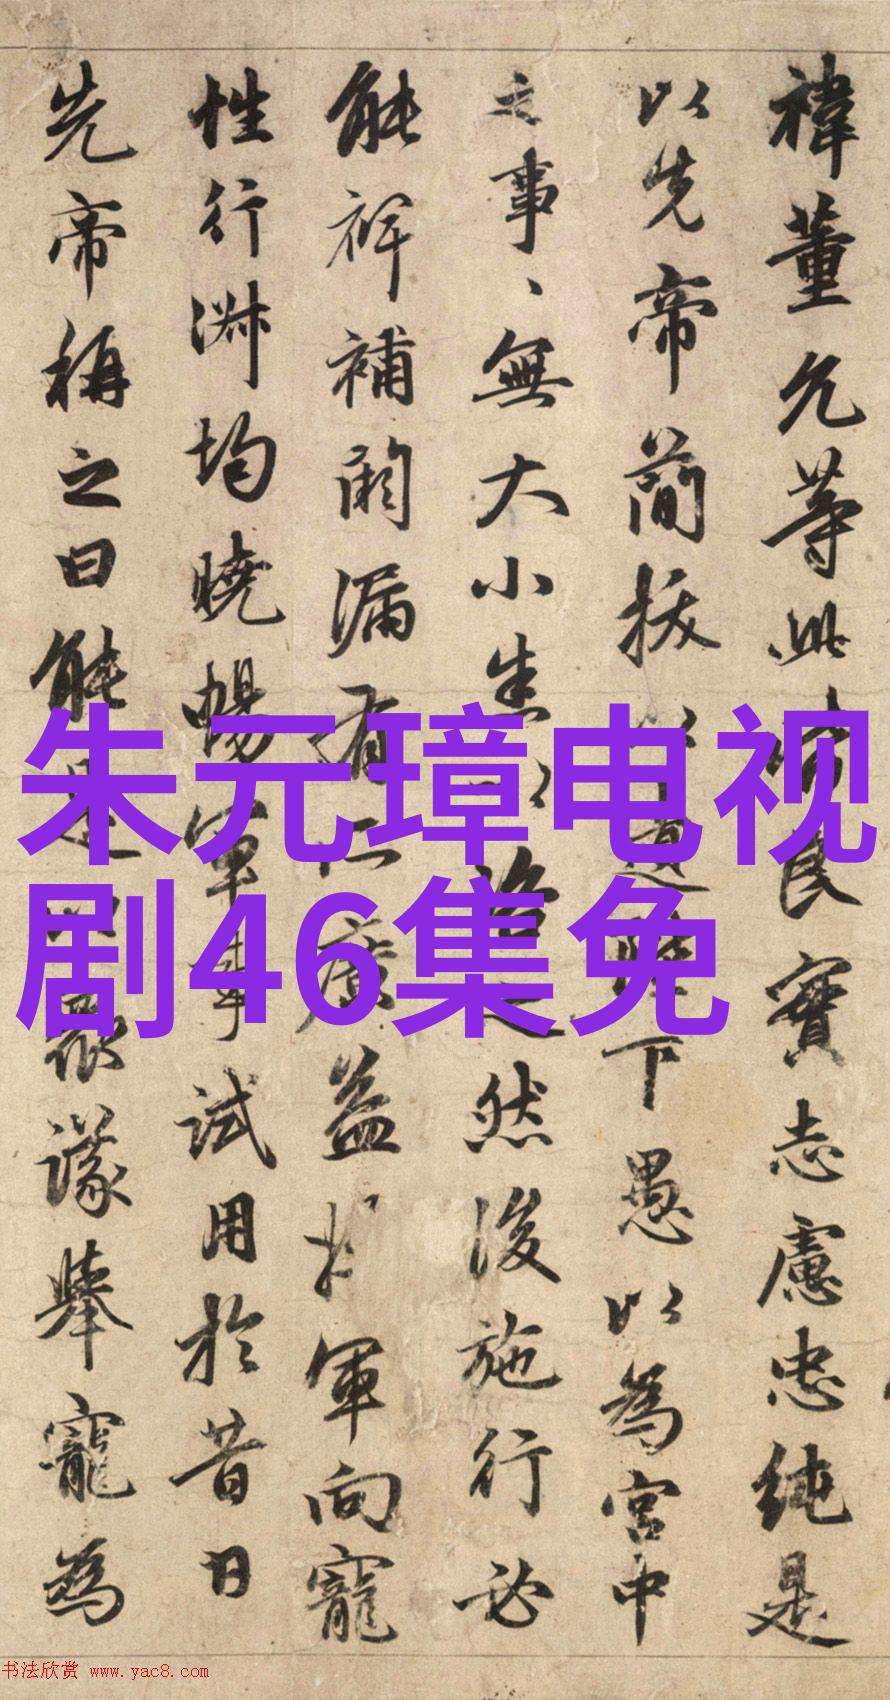 禕董允等此皆良實志慮忠純是
以先帝簡拔以遺陛下愚以為宮中
之事、無大小悉以咨之然後施行必
能裨補闕漏有所廣益將軍向寵
性行淋均曉暢軍事試用於昔日
先帝稱之曰能是以眾議舉寵為
朱元璋电视
剧46集免
书法欣赏 www.yac8.com